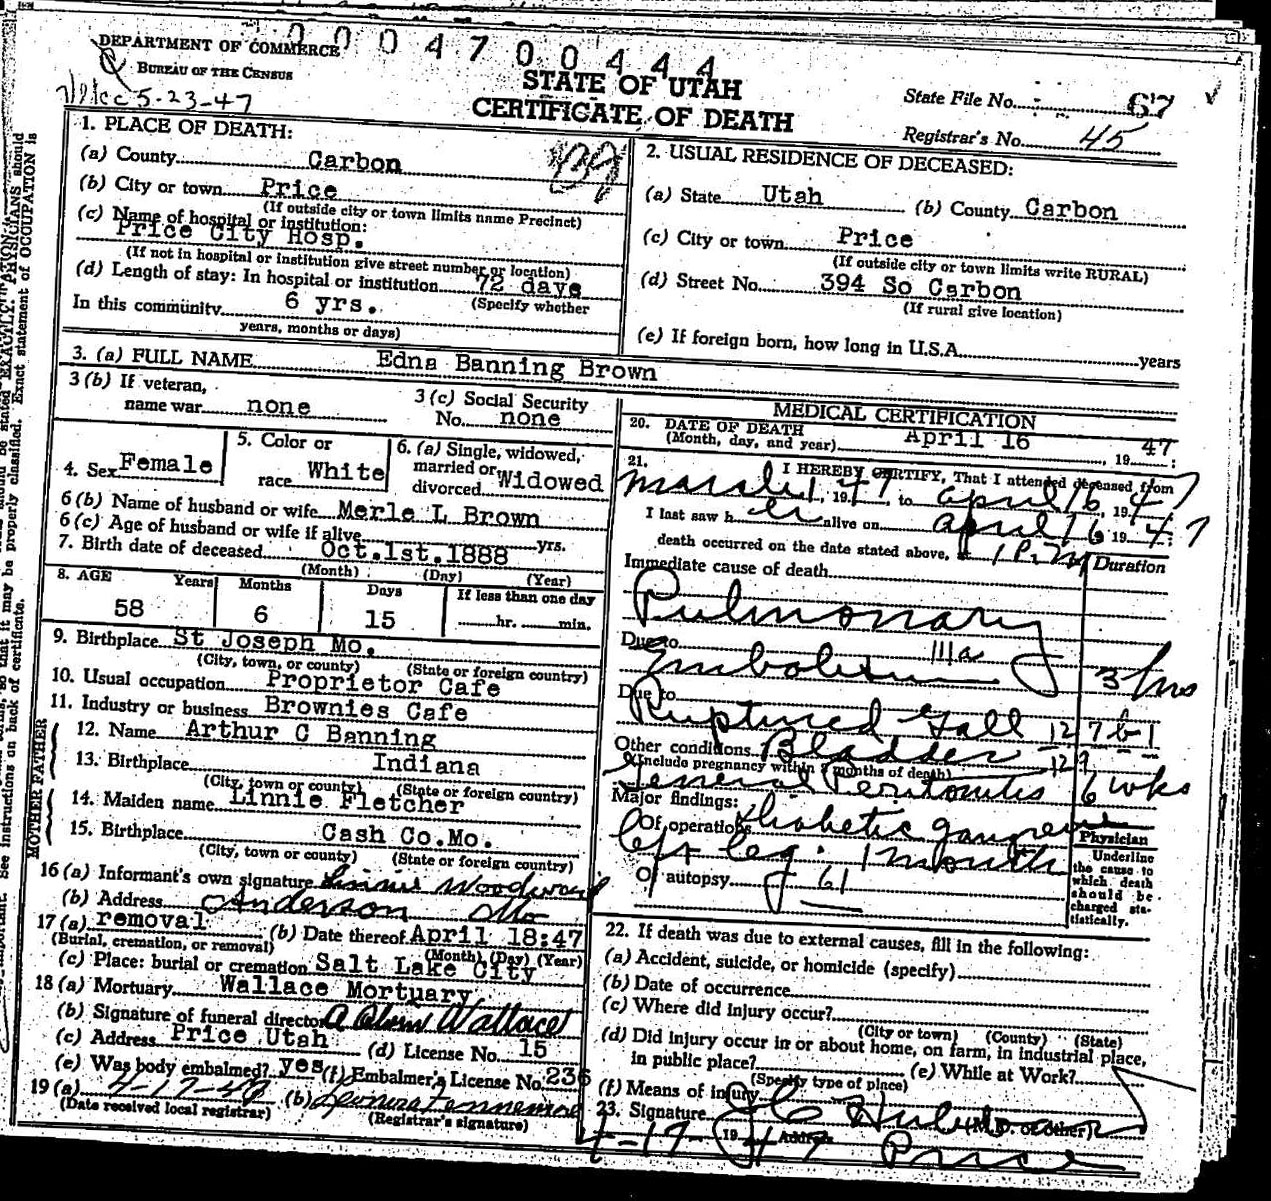 0004700444
DEPARTMENT OF COMMERCE
BUREAU OF THE CENSUS
5-23-47
STATE OF UTAH
CERTIFICATE OF DEATH
State File No. 67
Registrar's No. 45
1. PLACE OF DEATH:
(a) County Carbon
(b) City or town Price
(If outside city or town limits name Precinct)
(c) Name of hospital or institution:
Price City Hosp.
(If not in hospital or institution give street number or location)
(d) Length of stay: In hospital or institution 72 days
(Specify whether
In this community 6 yrs.
years, months or days)
2. USUAL RESIDENCE OF DECEASED:
(a) State Utah (b) County Carbon
(c) City or town Price
(If outside city or town limits write RURAL)
(d) Street No. 394 So Carbon
(If rural give location)
(e) If foreign born, how long in U.S.A. years
3. (a) FULL NAME Edna Banning Brown
3 (b) If veteran,
name war none
3 (c) Social Security
No. none
4. Sex Female
5. Color or
race White
6. (a) Single, widowed,
married or
divorced Widowed
6 (b) Name of husband or wife Merle L Brown
6 (c) Age of husband or wife if alive yrs.
7. Birth date of deceased Oct.1st.1888
(Month) (Day) (Year)
8. AGE Years Months Days If less than one day
58 6 15 hr. min.
9. Birthplace St Joseph Mo.
(City, town, or county) (State or foreign country)
10. Usual occupation Proprietor Cafe
11. Industry or business Brownies Cafe
FATHER
12. Name Arthur C Banning
13. Birthplace Indiana
(City, town or county) (State or foreign country)
MOTHER
14. Maiden name Linnie Fletcher
15. Birthplace Cash Co.Mo.
(City, town or county) (State or foreign country)
16 (a) Informant's own signature Linnie Woodward
(b) Address Anderson Mo
17 (a) removal (b) Date thereof April 18:47
(Burial, cremation, or removal) (Month) (Day) (Year)
(c) Place: burial or cremation Salt Lake City
18 (a) Mortuary Wallace Mortuary
(b) Signature of funeral director Wallace
(c) Address Price Utah (d) License No. 15
(e) Was body embalmed? yes (f) Embalmer's License No. 236
19 (a) 4-17-47 (b)
(Date received local registrar) (Registrar's signature)
MEDICAL CERTIFICATION
20. DATE OF DEATH
(Month, day, and year) April 16, 1947;
21. I HEREBY CERTIFY, That I attended deceased from
March 1, 1947 to April 16, 1947
I last saw her alive on April 16 1947;
death occurred on the date stated above, at 1 P.M
Immediate cause of death Duration
Pulmonary
Due to
Embolism 111a 3 hrs
Due to
Ruptured Gall 127b-1
Other conditions Bladder 129
(Include pregnancy within 3 months of death)
General Peritonitis 6 wks
Major findings:
Of operations Diabetic gangrene
left leg. 1 month
Of autopsy 61
Physician
Underline
the cause to
which death
should be
charged sta-
tistically.
22. If death was due to external causes, fill in the following:
(a) Accident, suicide, or homicide (specify)
(b) Date of occurrence
(c) Where did injury occur?
(City or town) (County) (State)
(d) Did injury occur in or about home, on farm, in industrial place,
in public place? (e) While at Work?
(Specify type of place)
(f) Means of injury
23. Signature (M.D. or other)
4-17-1947 Address Price